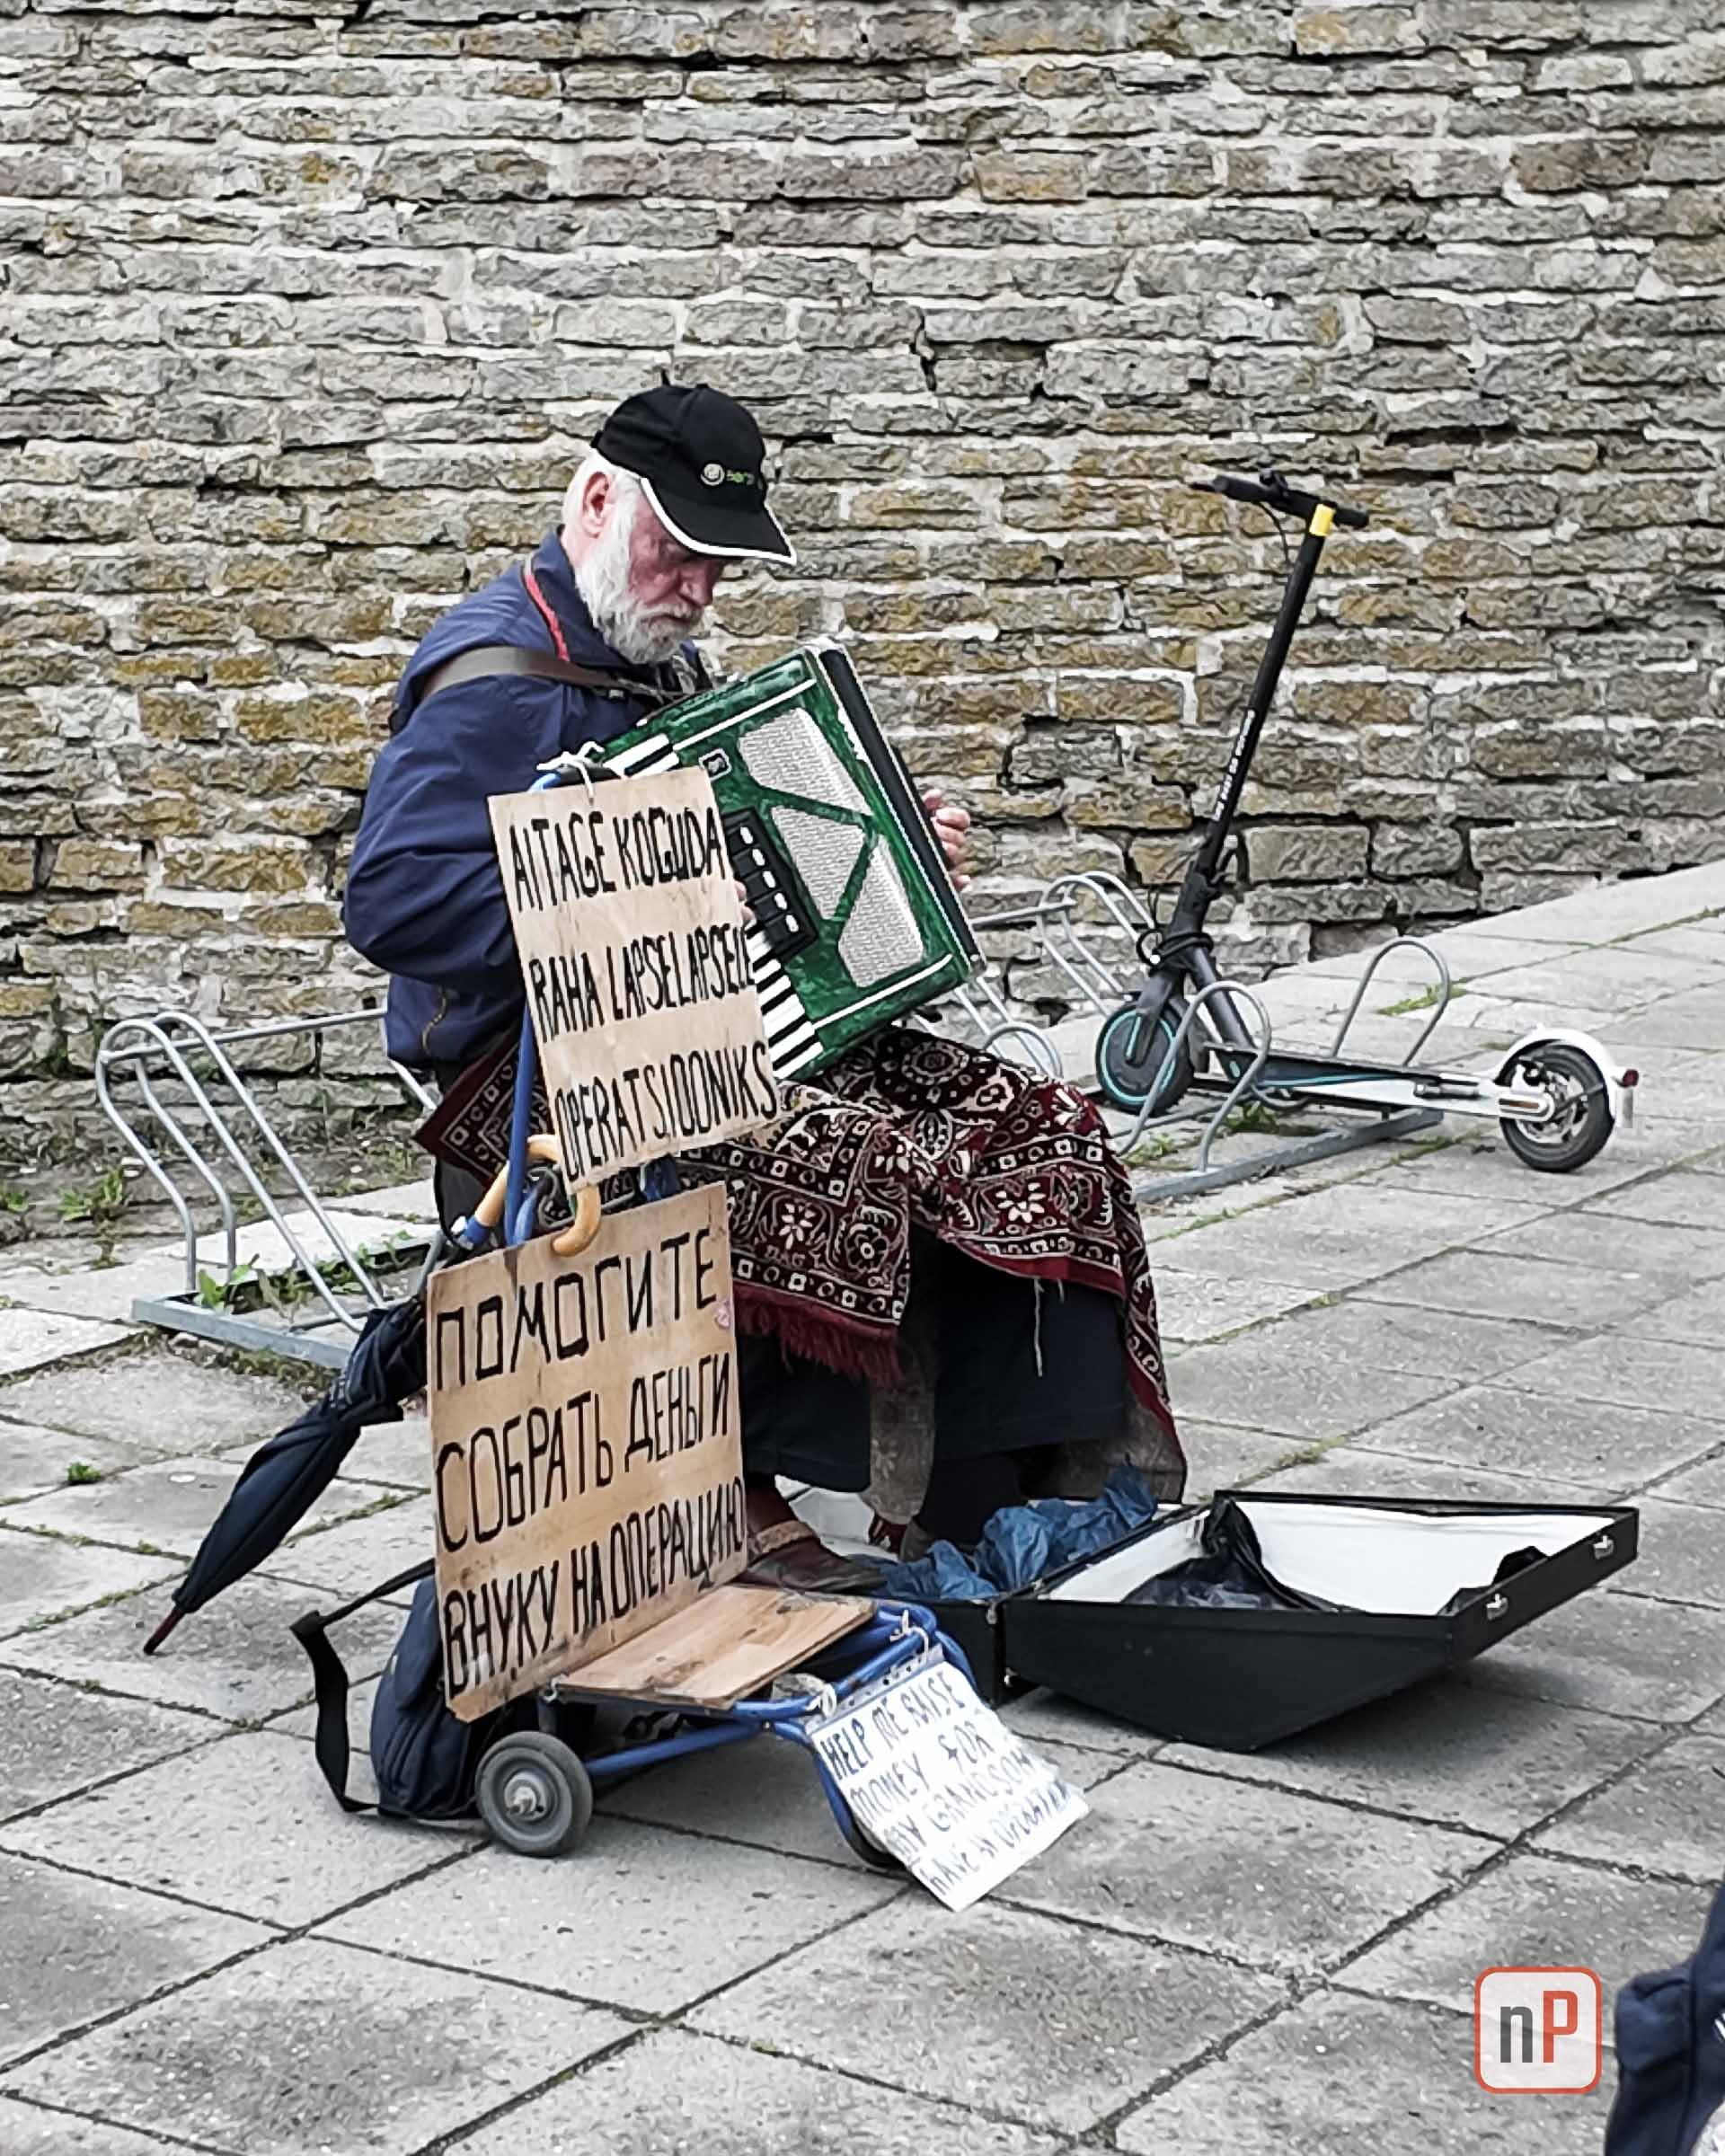 AITAGE KOGUDA
RAHA LAPSELAPSELE
OPERATSIOONIKS
ПОМОГИТЕ
СОБРАТЬ ДЕНЬГИ
ВНУКУ НА ОПЕРАЦИЮ
HELP ME RAISE
MONEY FOR
MY GRANDSON
HAVE AN
nP